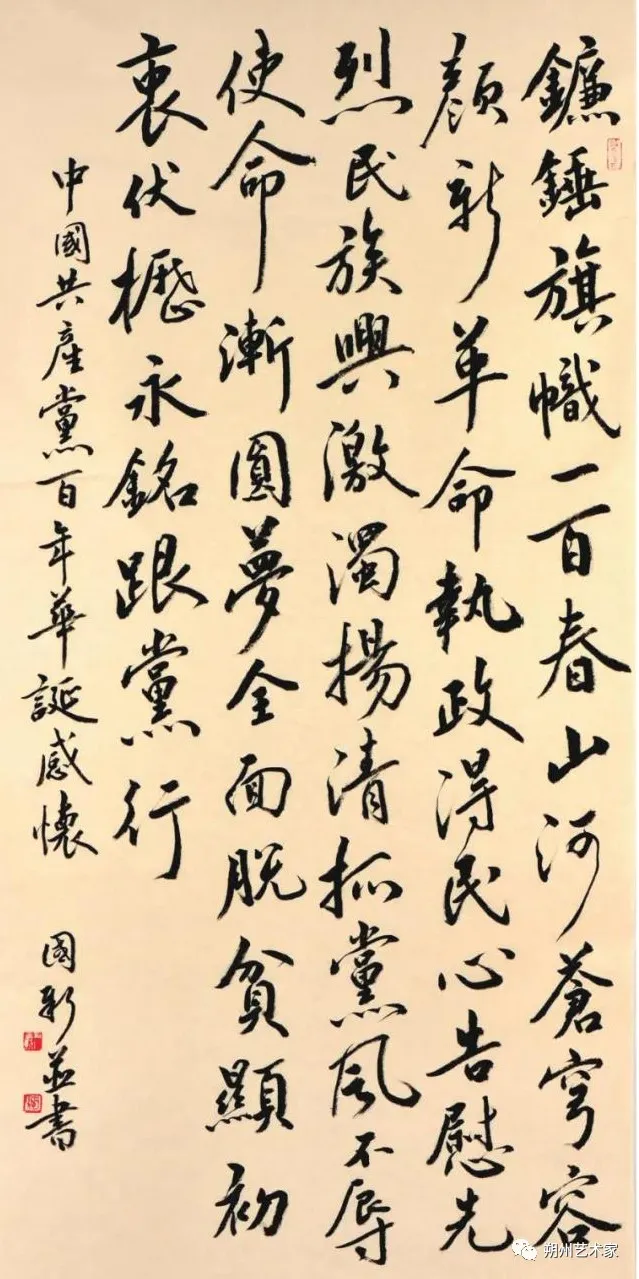 鐮錘旗幟一百春山河蒼穹容
顏新革命執政得民心告慰先
烈民族興激濁揚清抓黨風不辱
使命漸圓夢全面脱貧顯初
衷伏櫪永銘跟黨行
中國共產黨百年華誕感懷
國新並書
朔州艺术家